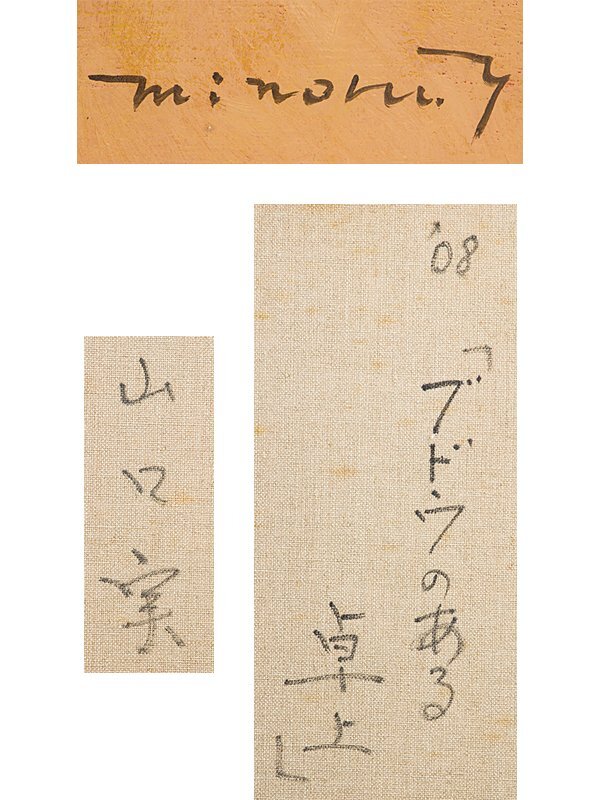 minoru.y
'08
「ブドウのある
卓上」
山口実